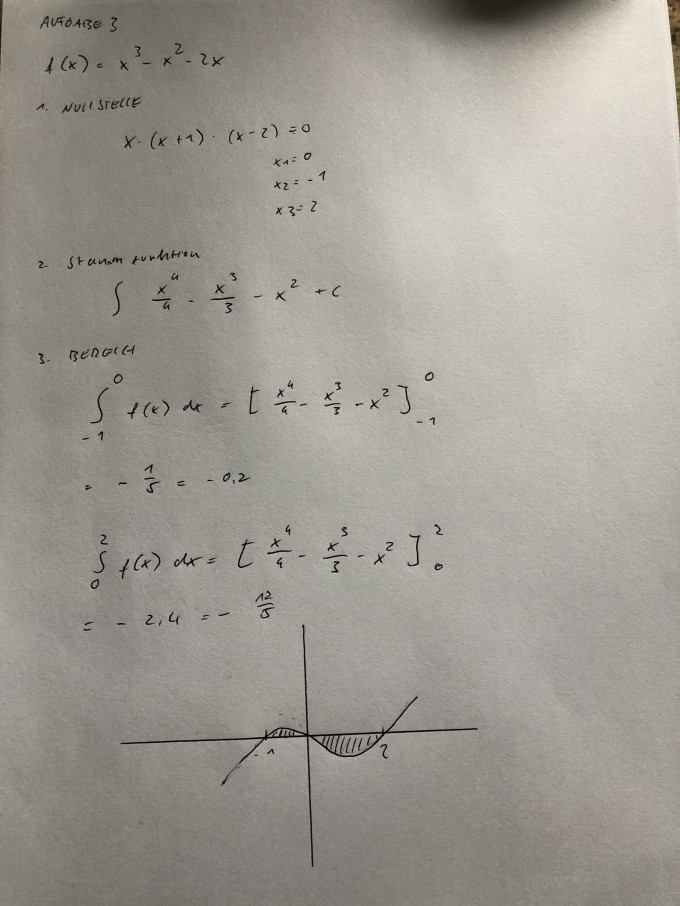 AUFGABE 3
f(x) = x³ - x² - 2x
1. NULLSTELLE
x · (x + 1) · (x - 2) = 0
x1 = 0
x2 = -1
x3 = 2
2. Stammfunktion
∫ x⁴/4 - x³/3 - x² + C
3. BEREICH
∫₋₁⁰ f(x) dx = [ x⁴/4 - x³/3 - x² ]₋₁⁰
= - 1/5 = - 0,2
∫₀² f(x) dx = [ x⁴/4 - x³/3 - x² ]₀²
= - 2,4 = - 12/5
-1 2